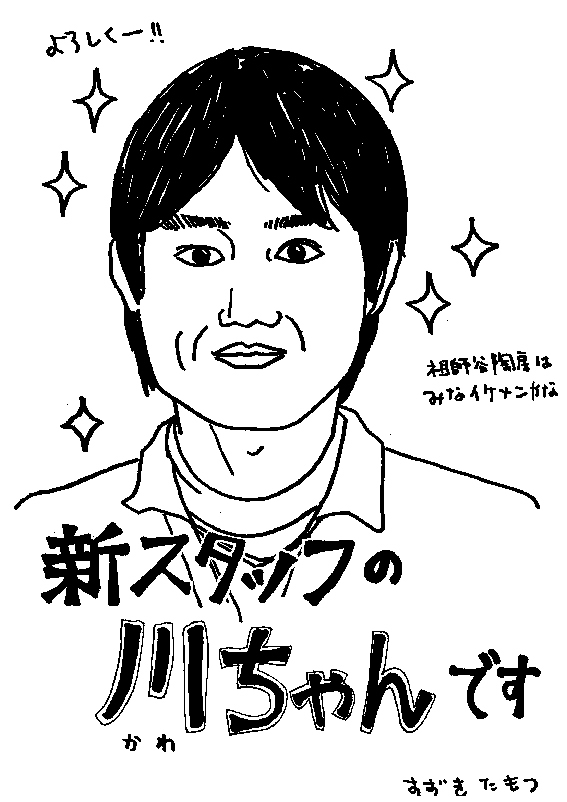 よろしくー!!
祖師谷陶房は
みなイケメンかな
新スタッフの
川ちゃんです
かわ
すずきたもつ